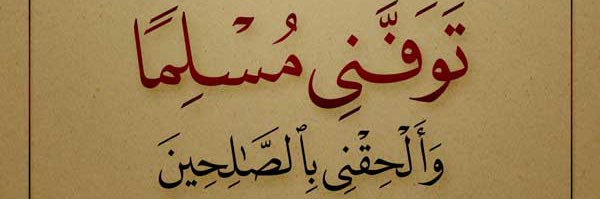 تَوَفَّنِى مُسْلِمًا
وَأَلْحِقْنِى بِٱلصَّـٰلِحِينَ